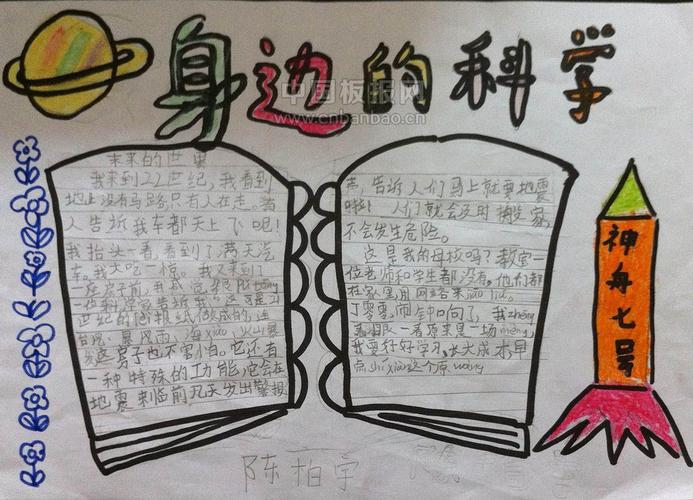 身边的科学
中国板报网
www.cnbanbao.cn
未来的世界
我来到22世纪，我看到
地上没有马路只有人在走。
人告诉我车都天上飞呢！
我抬头一看，看到了满天汽
车。我大吃一惊。我又来到了
一座房子前，
一位科学家告诉我
世纪的
台风、暴风雨、海xiao、火山
房子也不害怕。它还有
一种特殊的功能它会在
地震来临前几天发出警报
声，告诉人们马上就要地震
啦！人们就会及时搬家，
不会发生危险。
这是我的母校吗？教室一
位老师和学生都没有。他们都
在家里用网络来jiao liu。
丁零零闹钟响了，我zheng
一看原来是一场meng，
我要好好学习，长大成才早
点shi xian这个愿wang
神舟七号
陈柏宇